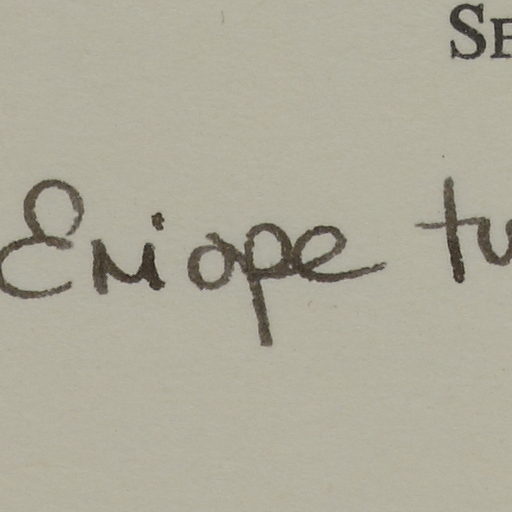 SE
Eriope tu